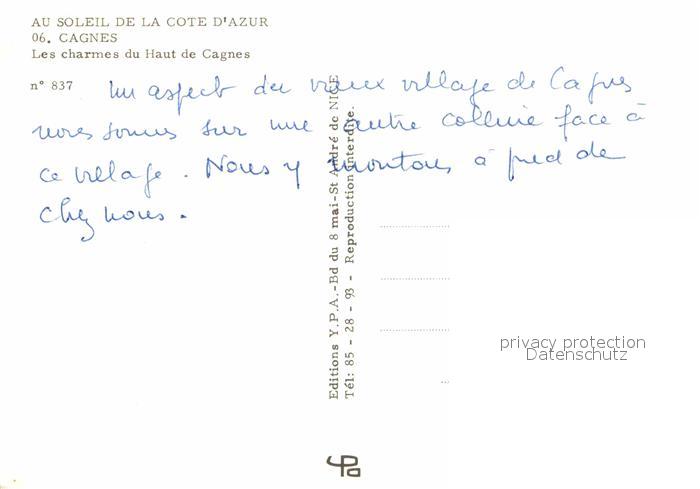 AU SOLEIL DE LA COTE D'AZUR
06. CAGNES
Les charmes du Haut de Cagnes
n° 837
Un aspect du vieux village de Cagnes
nous sommes sur une autre colline face à
ce village. Nous y montons à pied de
chez nous.
Editions Y.P.A.-Bd du 8 mai-St André de NICE
Tél: 85 - 28 - 93 - Reproduction interdite.
privacy protection
Datenschutz